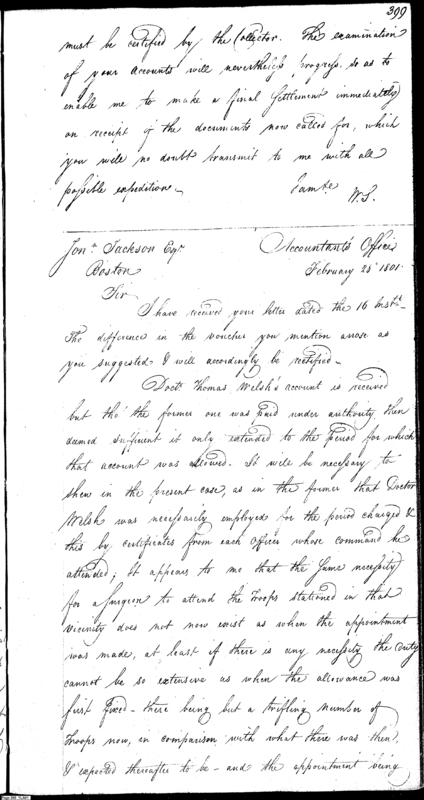 399
must be certified by the Collector. The examination
of your accounts will nevertheless progress, so as to
enable me to make a final settlement immediately
on receipt of the documents now called for, which
you will no doubt transmit to me with all
possible expedition.
I am &c
W. S.
Jonn. Jackson Esqr. Accountant's Office
Boston February 25th 1801.
Sir
I have received your letter dated the 16 Inst.
The difference in the voucher you mention arose as
you suggested & will accordingly be rectified.
Doctr. Thomas Welsh's account is received
but tho' the former one was paid under authority then
deemed sufficient it only extended to the period for which
that account was allowed. It will be necessary to
shew in the present case, as in the former that Doctor
Welsh was necessarily employed for the period charged &
this by certificates from each Officer whose command he
attended; It appears to me that the same necessity
for a surgeon to attend the Troops stationed in that
vicinity does not now exist as when the appointment
was made, at least if there is any necessity the duty
cannot be so extensive as when the allowance was
first fixed - there being but a trifling number of
Troops now, in comparison with what there was then,
& expected thereafter to be - and the appointment being